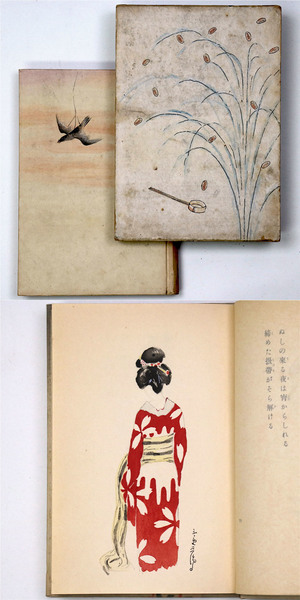 ぬしの来る夜は宵からしれる
締めた扱帯がそら解ける